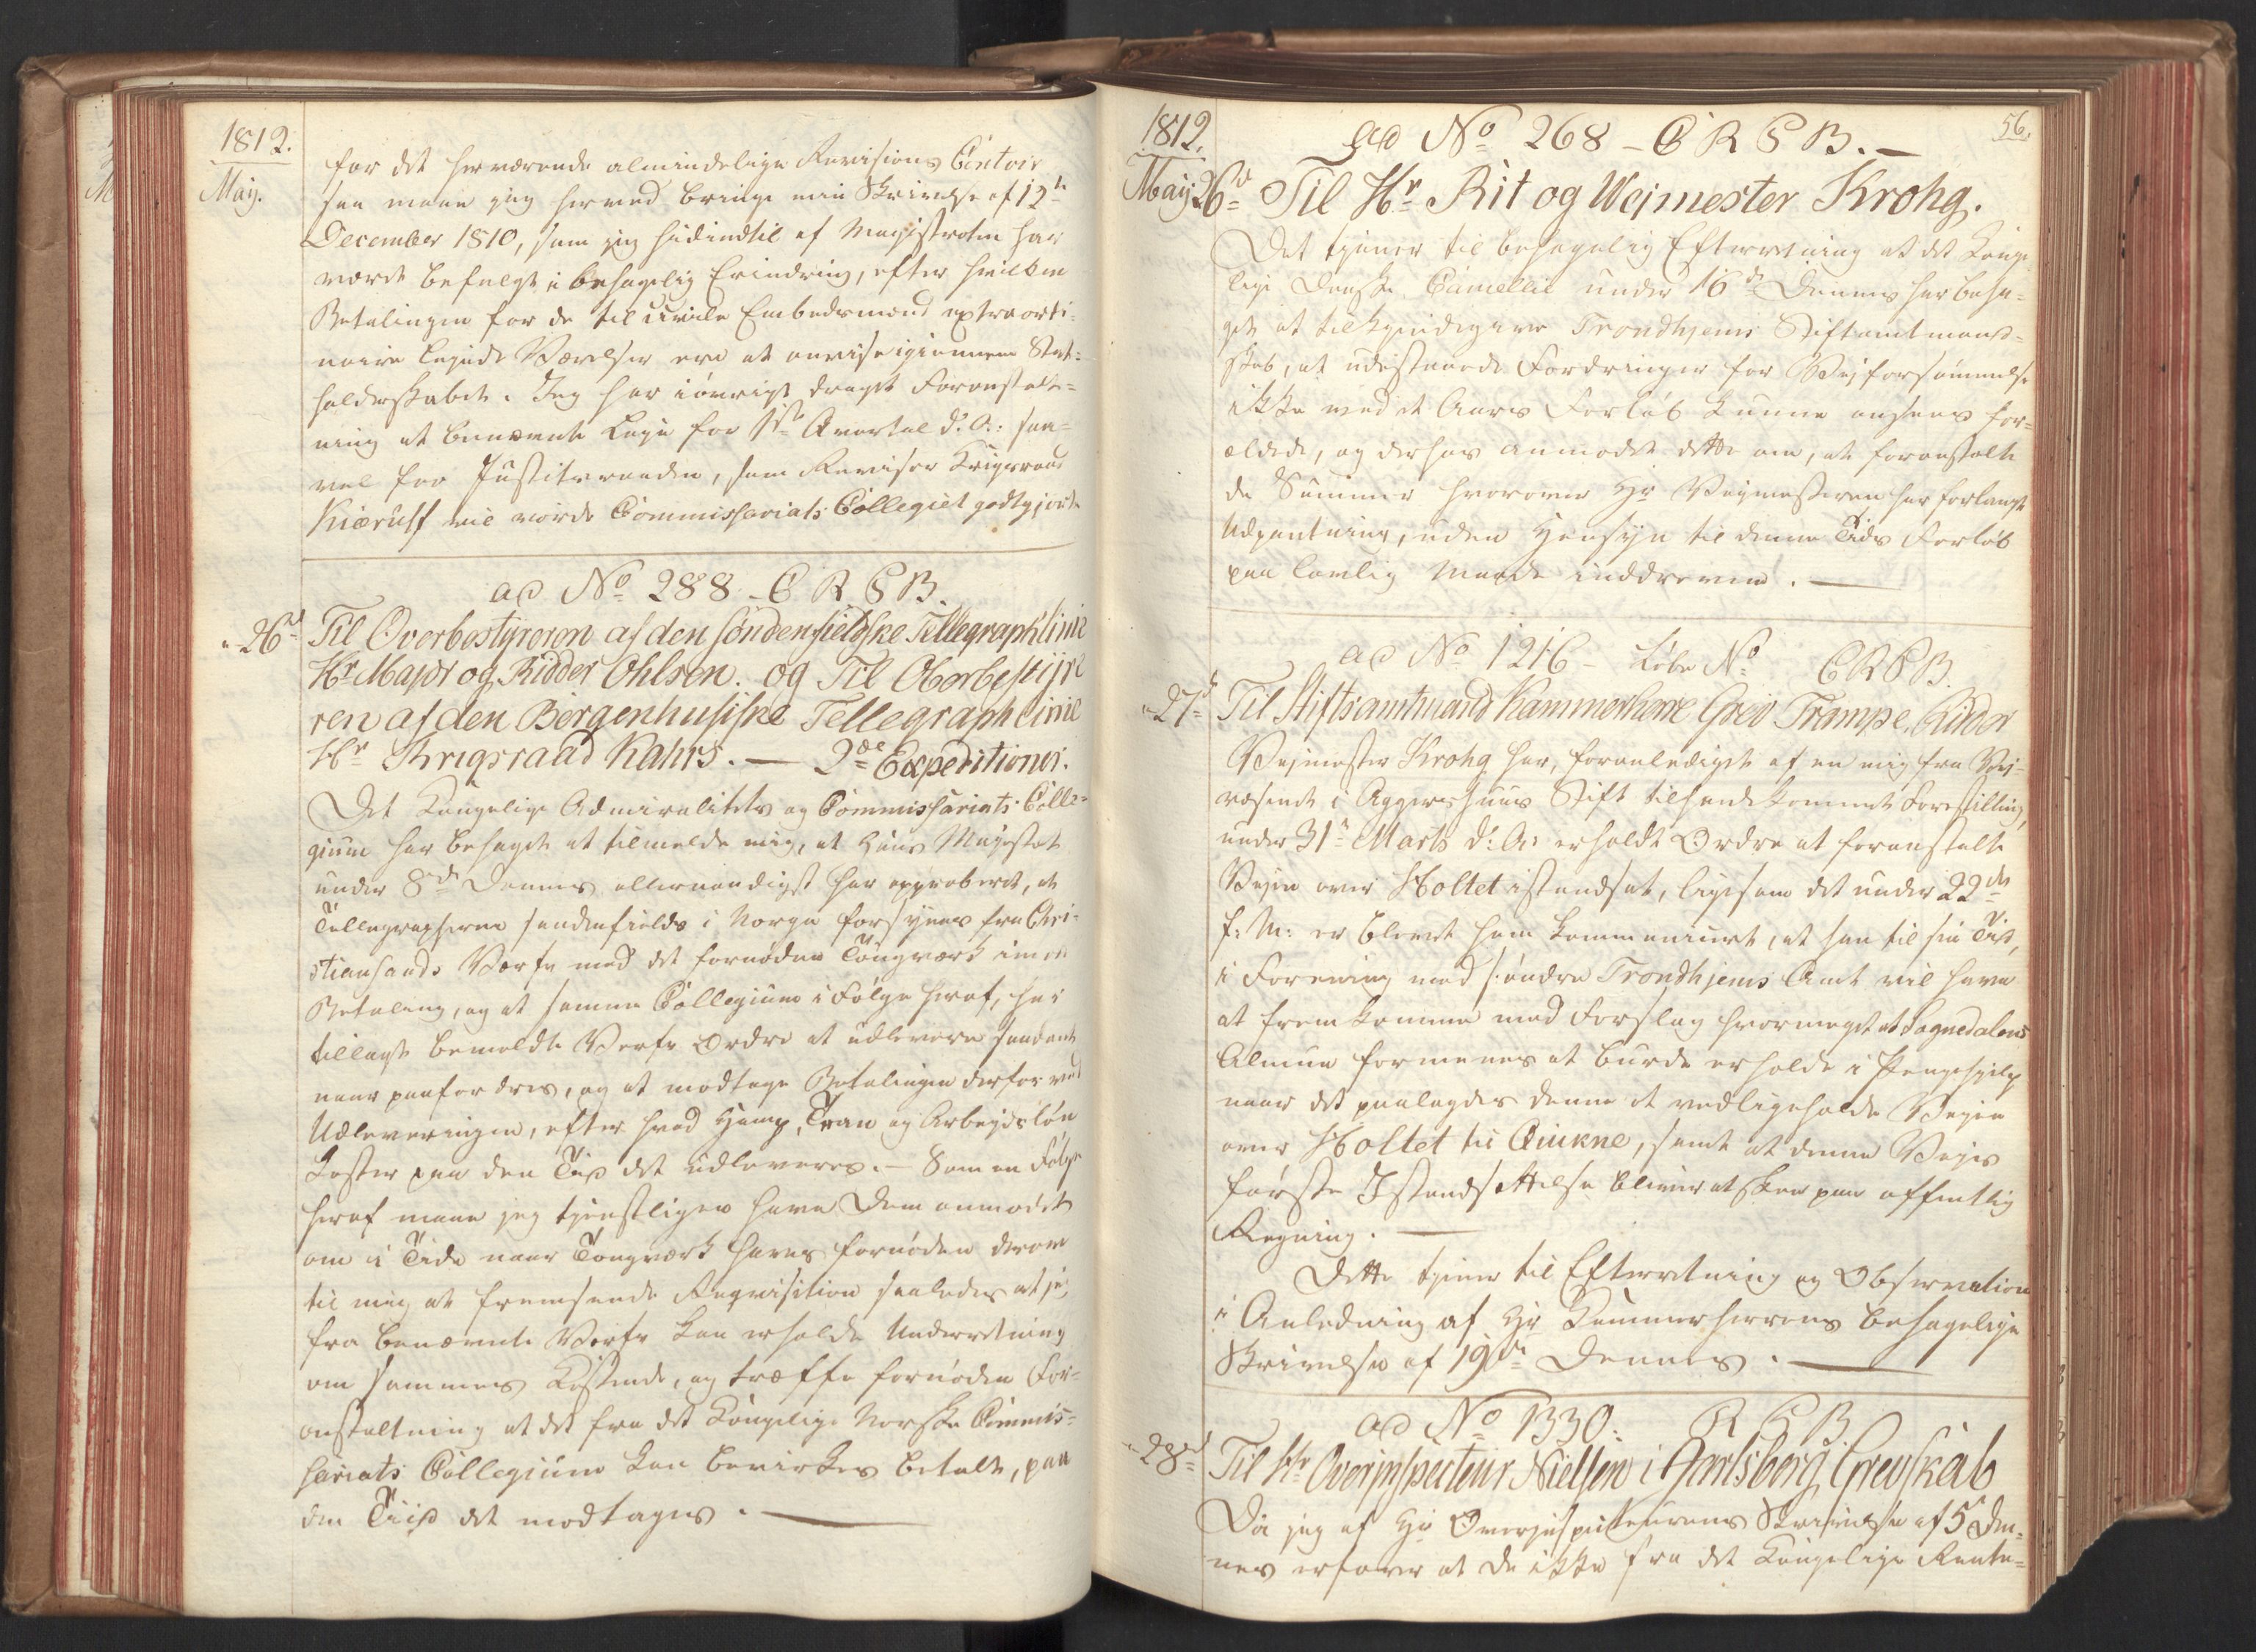 1812.
May.
for det herværende almindelige Revisions Contoir
saa maae jeg herved bringe min Skrivelse af 12te
December 1810, som jeg hidindtil af Magistraten har
været befulgt i behagelig Erindring, efter hvilken
Betalingen for de til civile Embedsmænd extraordi-
naire leyede Værelser ere at anvise igiennem Stat-
holderskabet. Jeg har iøvrigt draget Foranstalt-
ning at benævnte Leye for 1ste Qvartal d. A: saa-
vel for Justitsraaden, som Revisor Krigsraad
Kierulf vil vorde Commissariats Collegiet godtgjort
ad No 288 - C R S B.
" 26d Til Overbestyreren af den søndenfieldske Tellegraphlinie
Hr Major og Ridder Ohlsen. og Til Oberbestyre
ren af den Bergenhusiske Tellegraph Linie
Hr Krigsraad Kahrs. — 2de Expeditioner.
Det Kongelige Admiralitets og Commissariats-Colle-
gium har behaget at tilmelde mig, at Hans Majestæt
under 8de Dennes allernaadigst har approberet, at
Tellegrapherne søndenfields i Norge forsynes fra Chri-
stiansands Værft med det fornødne Tougværk imod
Betaling, og at samme Collegium i Følge heraf, har
tillagt bemeldte Værft Ordre at udlevere saadant
naar paafordres, og at modtage Betalingen derfor ved
Udleveringen, efter hvad Hamp, Tran og Arbeydsløn
koster paa den Tid det udleveres. — Som en Følge
heraf maae jeg tjenstligen have Dem anmodet
om i Tide naar Tougværk haves fornøden derom
til mig at fremsende Reqvisition saaledes at jeg
fra benævnte Værft kan erholde Underretning
om sammes Kostende, og træffe fornøden For-
anstaltning at det fra det Kongelige Norske Commis-
sariats Collegium kan bevirkes betalt, paa
den Tiid det modtages. —
1812.
56.
ad No 268 - C R S B. —
May 26d Til Hr Rit og Wejmester Krohg.
Det tjener til behagelig Efterretning at det Konge-
lige Danske Cancellie under 16de Dennes har beha-
get at tilkjendegive Trondhjems Stiftamtmand-
skab, at udestaaende Fordringer for Vejforsømmelse
ikke med et Aars Forløb kunne ansees for-
ældede, og derhos anmodet dette om, at foranstalte
de Summer hvorover Hr Vejmesteren har forlangt
Udpantning, uden Hensyn til denne Tids Forløb
paa lovlig Maade inddrevne. —
ad No 1216 - Løbe No C R S B.
" 27d Til Stiftsamtmand Kammerherre Grev Trampe, Ridder
Vejmester Krohg har, foranlediget af en mig fra Vej-
væsenet i Aggershuus Stift tilhændekommet Forestilling,
under 31te Marts d: A: erholdt Ordre at foranstalte
Vejen over Holtet istandsat, ligesom det under 22de
f: M: er blevet ham kommuniceret, at han til sin Tid,
i Forening med søndre Trondhjems Amt vil have
at fremkomme med Forslag hvormeget at Sognedalens
Almue formenes at burde erholde i Pengehjelp
naar det paalagdes denne at vedligeholde Vejen
over Holtet til Qvikne, samt at denne Vejs
første Istandsættelse bliver at skee paa offentlig
Regning. —
Dette tjener til Efterretning og Observation
i Anledning af Hr Kammerherrens behagelige
Skrivelse af 19de Dennes. —
ad No 1330. R S B
" 28d Til Hr Overinspecteur Nielsen i Jarlsberg Grevskab
Da jeg af Hr Overinspecteurens Skrivelse af 5 Den-
nes erfarer at De ikke fra det Kongelige Rente-